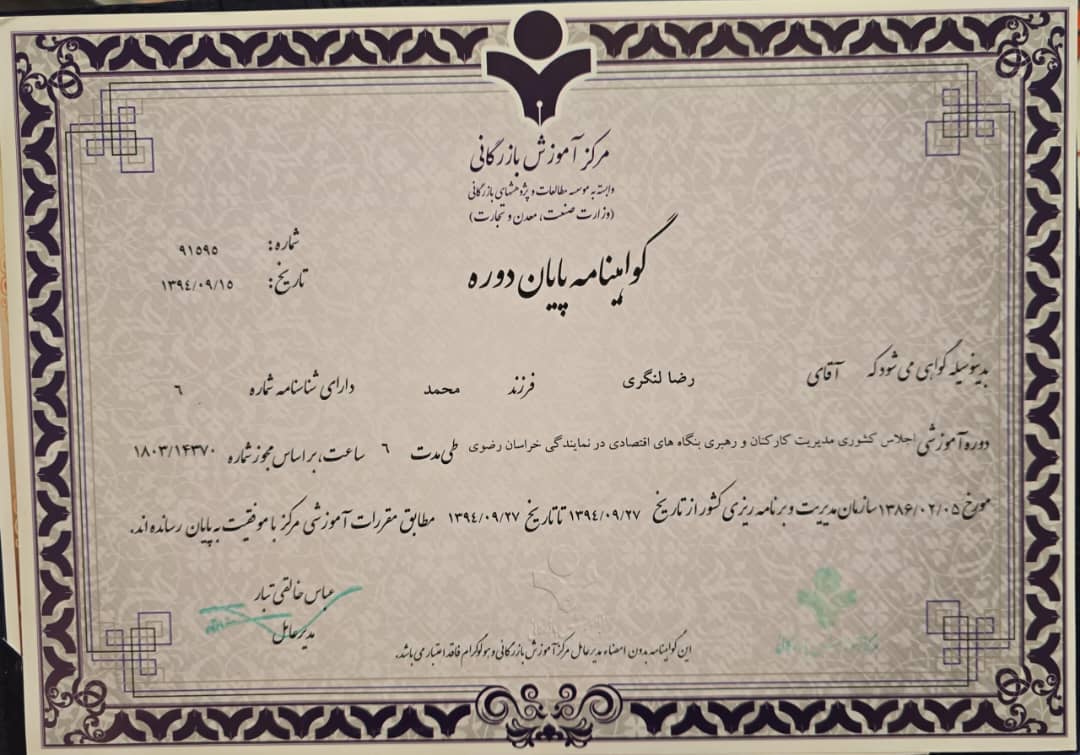 مرکز آموزش بازرگانی
وابسته به موسسه مطالعات و پژوهشهای بازرگانی
(وزارت صنعت، معدن و تجارت)
شماره: ۹۱۵۹۵
تاریخ: ۱۳۹٤/۰۹/۱٥
گواهینامه پایان دوره
بدینوسیله گواهی می شود که آقای رضا لنگری فرزند محمد دارای شناسنامه شماره ٦
دوره آموزشی اجلاس کشوری مدیریت کارکنان و رهبری بنگاه های اقتصادی در نمایندگی خراسان رضوی طی مدت ٦ ساعت، بر اساس مجوز شماره ۱۸۰۳/۱٤۳۷۰
مورخ ۱۳۸۶/۰۲/۰۵ سازمان مدیریت و برنامه ریزی کشور از تاریخ ۱۳۹٤/۰۹/۲۷ تا تاریخ ۱۳۹٤/۰۹/۲۷ مطابق مقررات آموزشی مرکز با موفقیت به پایان رسانده اند.
عباس خالقی تبار
مدیرعامل
این گواهینامه بدون امضاء مدیرعامل مرکز آموزش بازرگانی و هولوگرام فاقد اعتبار می باشد.